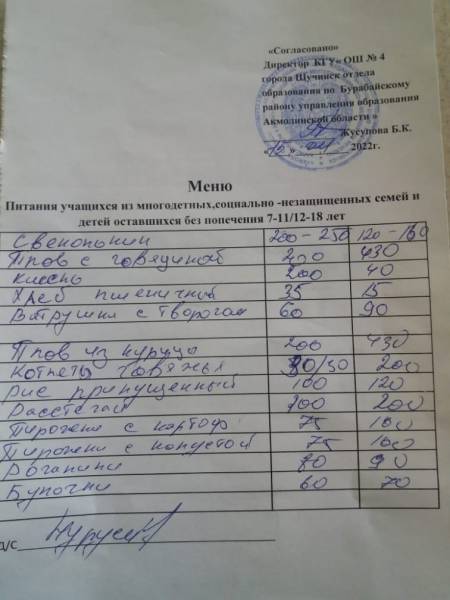 «Согласовано»
Директор КГУ« ОШ № 4
города Щучинск отдела
образования по Бурабайскому
району управления образования
Акмолинской области »
Жусупова Б.К.
2022г.
Меню
Питания учащихся из многодетных,социально -незащищенных семей и
детей оставшихся без попечения 7-11/12-18 лет
Свекольник 200-250 120-160
Плов с говядиной 200 430
Кисель 200 40
Хлеб пшеничный 35 15
Ватрушки с творогом 60 90
Плов из курицы 200 430
Котлеты говяжьи /50 200
Рис припущенный 100 120
Расстегай 100 200
Пирожки с картоф 75 100
Пирожки с капустой 75 100
80 90
Булочки 60 70
Д/С